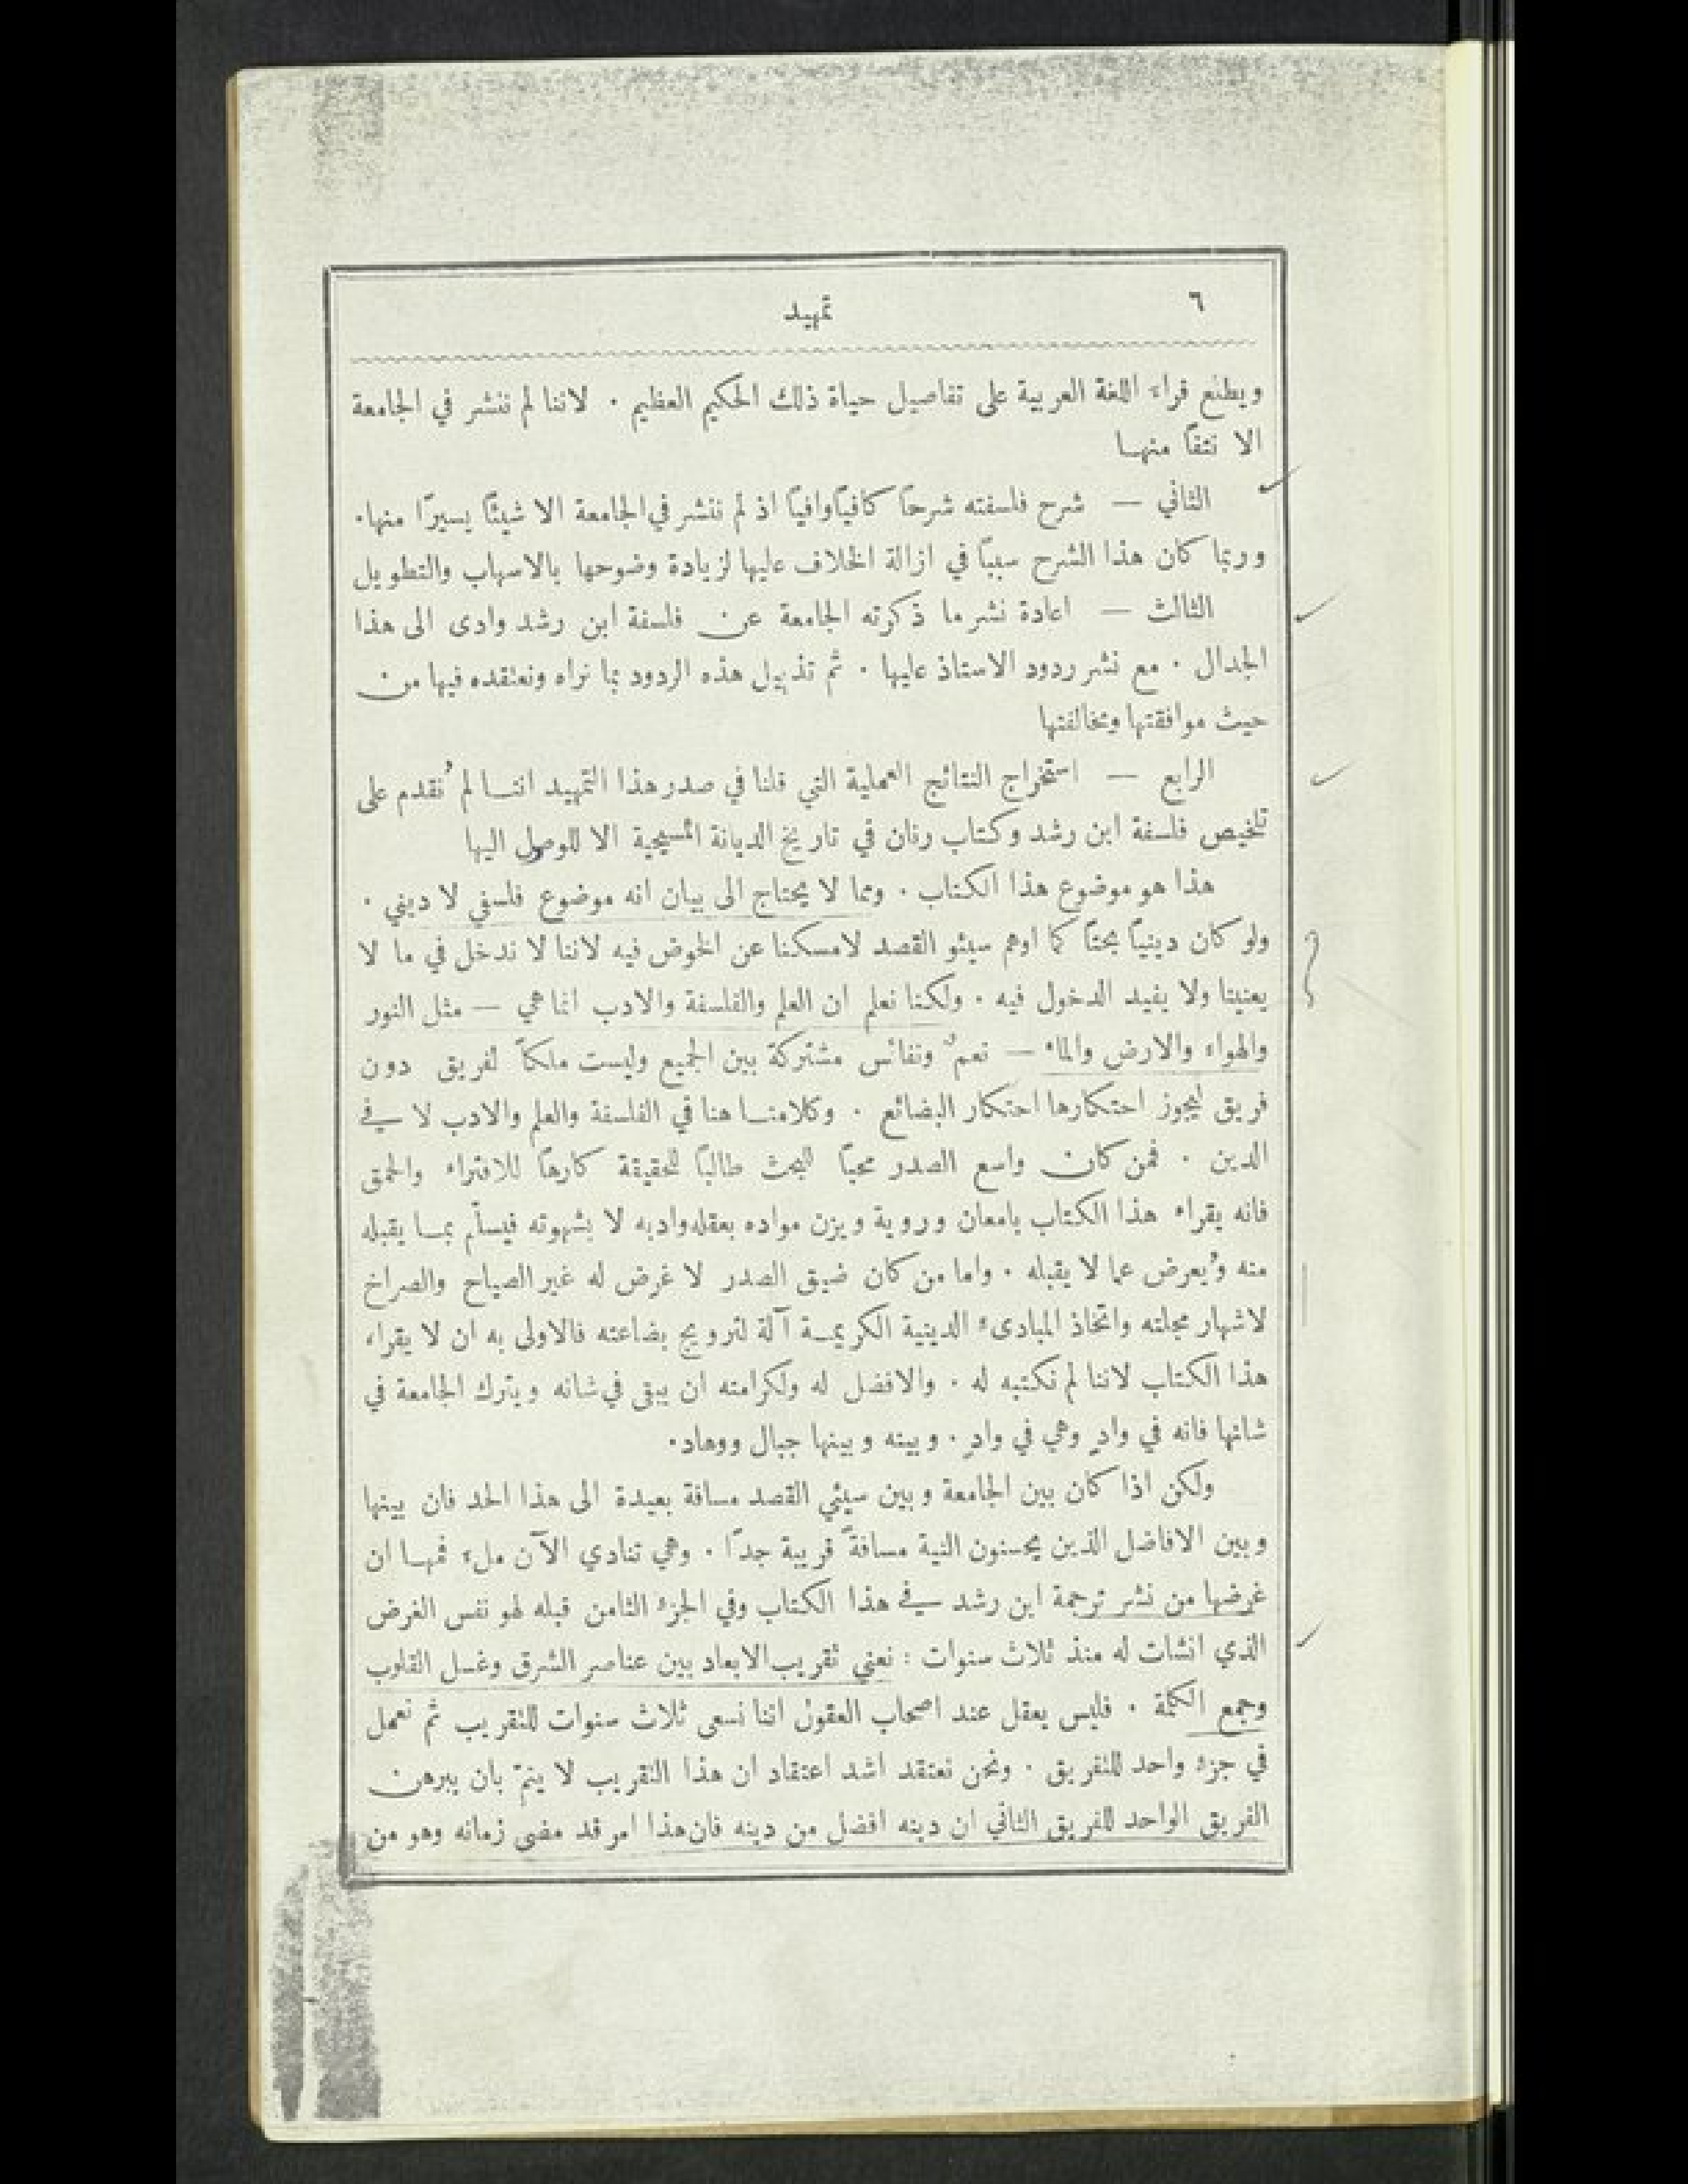 ٦
تمهيد
ويطلع قراء اللغة العربية على تفاصيل حياة ذلك الحكيم العظيم . لاننا لم ننشر في الجامعة
الا نتفًا منها
الثاني — شرح فلسفته شرحًا كافيًا وافيًا اذ لم ننشر في الجامعة الا شيئًا يسيرًا منها.
وربما كان هذا الشرح سببًا في ازالة الخلاف عليها لزيادة وضوحها بالاسهاب والتطويل
الثالث — اعادة نشر ما ذكرته الجامعة عن فلسفة ابن رشد وادى الى هذا
الجدال . مع نشر ردود الاستاذ عليها . ثم تذييل هذه الردود بما نراه ونعتقده فيها من
حيث موافقتها ومخالفتها
الرابع — استخراج النتائج العملية التي قلنا في صدر هذا التمهيد اننا لم نُقدم على
تلخيص فلسفة ابن رشد وكتاب رنان في تاريخ الديانة المسيحية الا للوصول اليها
هذا هو موضوع هذا الكتاب . ومما لا يحتاج الى بيان انه موضوع فلسفي لا ديني .
ولو كان دينيًا بحتًا كما اوهم سيئو القصد لامسكنا عن الخوض فيه لاننا لا ندخل في ما لا
يعنينا ولا يفيد الدخول فيه . ولكنا نعلم ان العلم والفلسفة والادب انما هي — مثل النور
والهواء والارض والماء — نعمٌ ونفائس مشتركة بين الجميع وليست ملكًا لفريق دون
فريق ليجوز احتكارها احتكار البضائع . وكلامنا هنا في الفلسفة والعلم والادب لا في
الدين . فمن كان واسع الصدر محبًا للبحث طالبًا للحقيقة كارهًا للافتراء والحمق
فانه يقراء هذا الكتاب بامعان وروية ويزن مواده بعقله وادبه لا بشهوته فيسلّم بما يقبله
منه ويُعرض عما لا يقبله . واما من كان ضيق الصدر لا غرض له غير الصياح والصراخ
لاشهار مجلته واتخاذ المبادىء الدينية الكريمة آلة لترويج بضاعته فالاولى به ان لا يقراء
هذا الكتاب لاننا لم نكتبه له . والافضل له ولكرامته ان يبقى في شانه ويترك الجامعة في
شانها فانه في وادٍ وهي في وادٍ . وبينه وبينها جبال ووهاد.
ولكن اذا كان بين الجامعة وبين سيئي القصد مسافة بعيدة الى هذا الحد فان بينها
وبين الافاضل الذين يحسنون النية مسافةً قريبة جدًا . وهي تنادي الآن ملء فمها ان
غرضها من نشر ترجمة ابن رشد في هذا الكتاب وفي الجزء الثامن قبله لهو نفس الغرض
الذي انشات له منذ ثلاث سنوات : نعني تقريب الابعاد بين عناصر الشرق وغسل القلوب
وجمع الكلمة . فليس يعقل عند اصحاب العقول اننا نسعى ثلاث سنوات للتقريب ثم نعمل
في جزء واحد للتفريق . ونحن نعتقد اشد اعتقاد ان هذا التقريب لا يتمّ بان يبرهن
الفريق الواحد للفريق الثاني ان دينه افضل من دينه فان هذا امر قد مضى زمانه وهو من